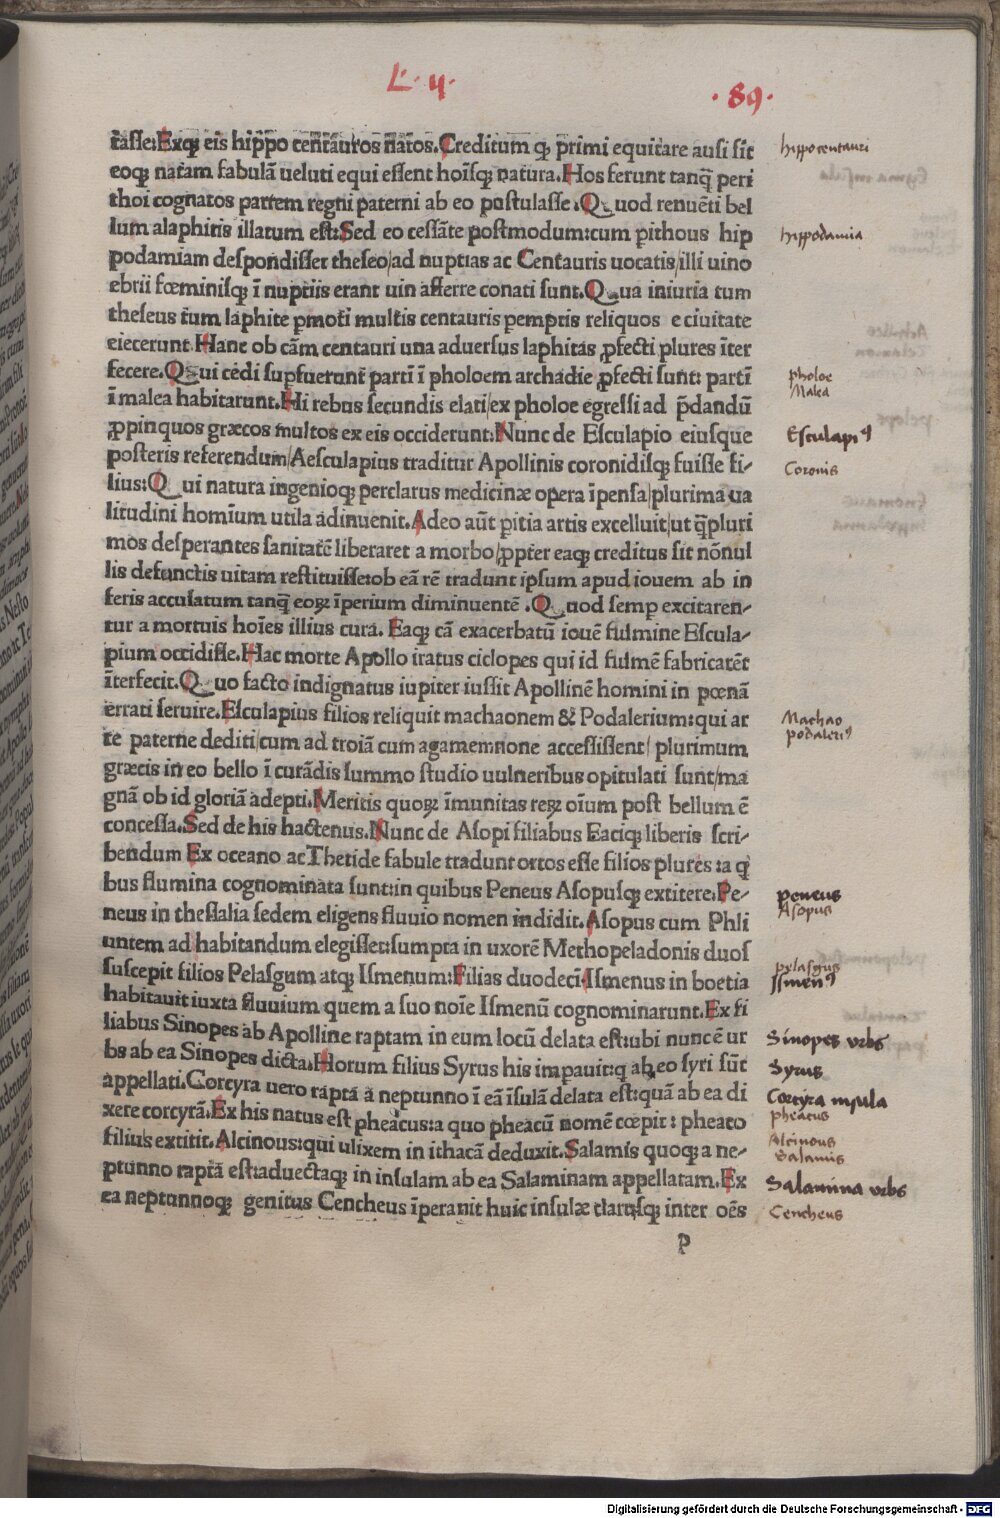 L. 4.
. 89 .
tasse: Exq̃ eis hippo centauros natos. Creditum q; primi equitare ausi sīt
eoq; natam fabulā ueluti equi essent hoīsq; natura. Hos ferunt tanq̄ peri
thoi cognatos partem regni paterni ab eo postulasse. Quod renuēti bel
lum alaphitis illatum est: Sed eo cessāte postmodum: cum pithous hip
podamiam despondisset theseo/ad nuptias ac Centauris uocatis/illi uino
ebrii fœminisq; ī nuptiis erant uin afferre conati sunt. Qua iniuria tum
theseus tum laphite ꝑmoti multis centauris ꝑemptis reliquos e ciuitate
eiecerunt. Hanc ob cām centauri una aduersus laphitas ꝓfecti plures īter
fecere. Qui cedi suꝑfuerunt partī ī pholoem archadie ꝓfecti sunt: partī
ī malea habitarunt. Hi rebus secundis elati/ex pholoe egressi ad p̄dandū
ꝓpinquos græcos multos ex eis occiderunt. Nunc de Esculapio eiusque
posteris referendum/Aesculapius traditur Apollinis coronidisq; fuisse fi-
lius: Qui natura ingenioq; perclarus medicinæ opera īpensa/plurima ua
litudini homīum utila adinuenit. Adeo aūt ꝑitia artis excelluit/ut q̄pluri
mos desperantes sanitatē liberaret a morbo/ꝓpter eaq; creditus sit nōnul
lis defunctis uitam restituisse: ob eā rē tradunt ipsum apud iouem ab in
feris accusatum tanq̄ eoꝝ īperium diminuentē. Quod semꝑ excitaren-
tur a mortuis hoīes illius cura. Eaq; cā exacerbatū iouē fulmine Escula-
pium occidisse. Hac morte Apollo iratus ciclopes qui id fulmē fabricatēt
īterfecit. Quo facto indignatus iupiter iussit Apollinē homini in pœnā
errati seruire. Esculapius filios reliquit machaonem & Podalerium: qui ar
te paterne dediti/cum ad troiā cum agamemnone accessissent/ plurimum
græcis in eo bello ī curādis summo studio uulneribus opitulati sunt/ma
gnā ob id gloriā adepti. Meritis quoꝝ īmunitas reꝝ oīum post bellum ē
concessa. Sed de his hactenus. Nunc de Asopi filiabus Eaciq; liberis scri-
bendum Ex oceano ac Thetide fabule tradunt ortos esse filios plures: a q̇
bus flumina cognominata sunt: in quibus Peneus Asopusq; extitere. Pe-
neus in thessalia sedem eligens fluuio nomen indidit. Asopus cum Phli
untem ad habitandum elegisset: sumpta in uxorē Methopeladonis duos
suscepit filios Pelasgum atq; Ismenum: Filias duodecī. Ismenus in boetia
habitauit iuxta fluuium quem a suo noīe Ismenū cognominarunt. Ex fi
liabus Sinopes ab Apolline raptam in eum locū delata est: ubi nunc ē ur
bs ab ea Sinopes dicta. Horum filius Syrus his impauit: q ab eo syri sūt
appellati. Corcyra uero rapta a neptunno ī eā īsulā delata est: quā ab ea di
xere corcyrā. Ex his natus est pheacus: a quo pheacū nomē cœpit: pheaco
filius extitit. Alcinous: qui ulixem in ithacā deduxit. Salamis quoq; a ne-
ptunno raptā est: aduectaq; in insulam ab ea Salaminam appellatam. Ex
ea neptunnoq; genitus Cencheus īperanit huic insulæ clarusq; inter oēs
P
hippocentauri
hippodamia
pholoe
Malea
Esculapiꝰ
Coronis
Machao
podaleriꝰ
peneus
Asopus
pelasgus
Ismenꝰ
Sinopes vrbs
Syrus
Corcyra insula
pheacus
Alcinous
Salamis
Salamina vrbs
Cencheus
Digitalisierung gefördert durch die Deutsche Forschungsgemeinschaft - DFG